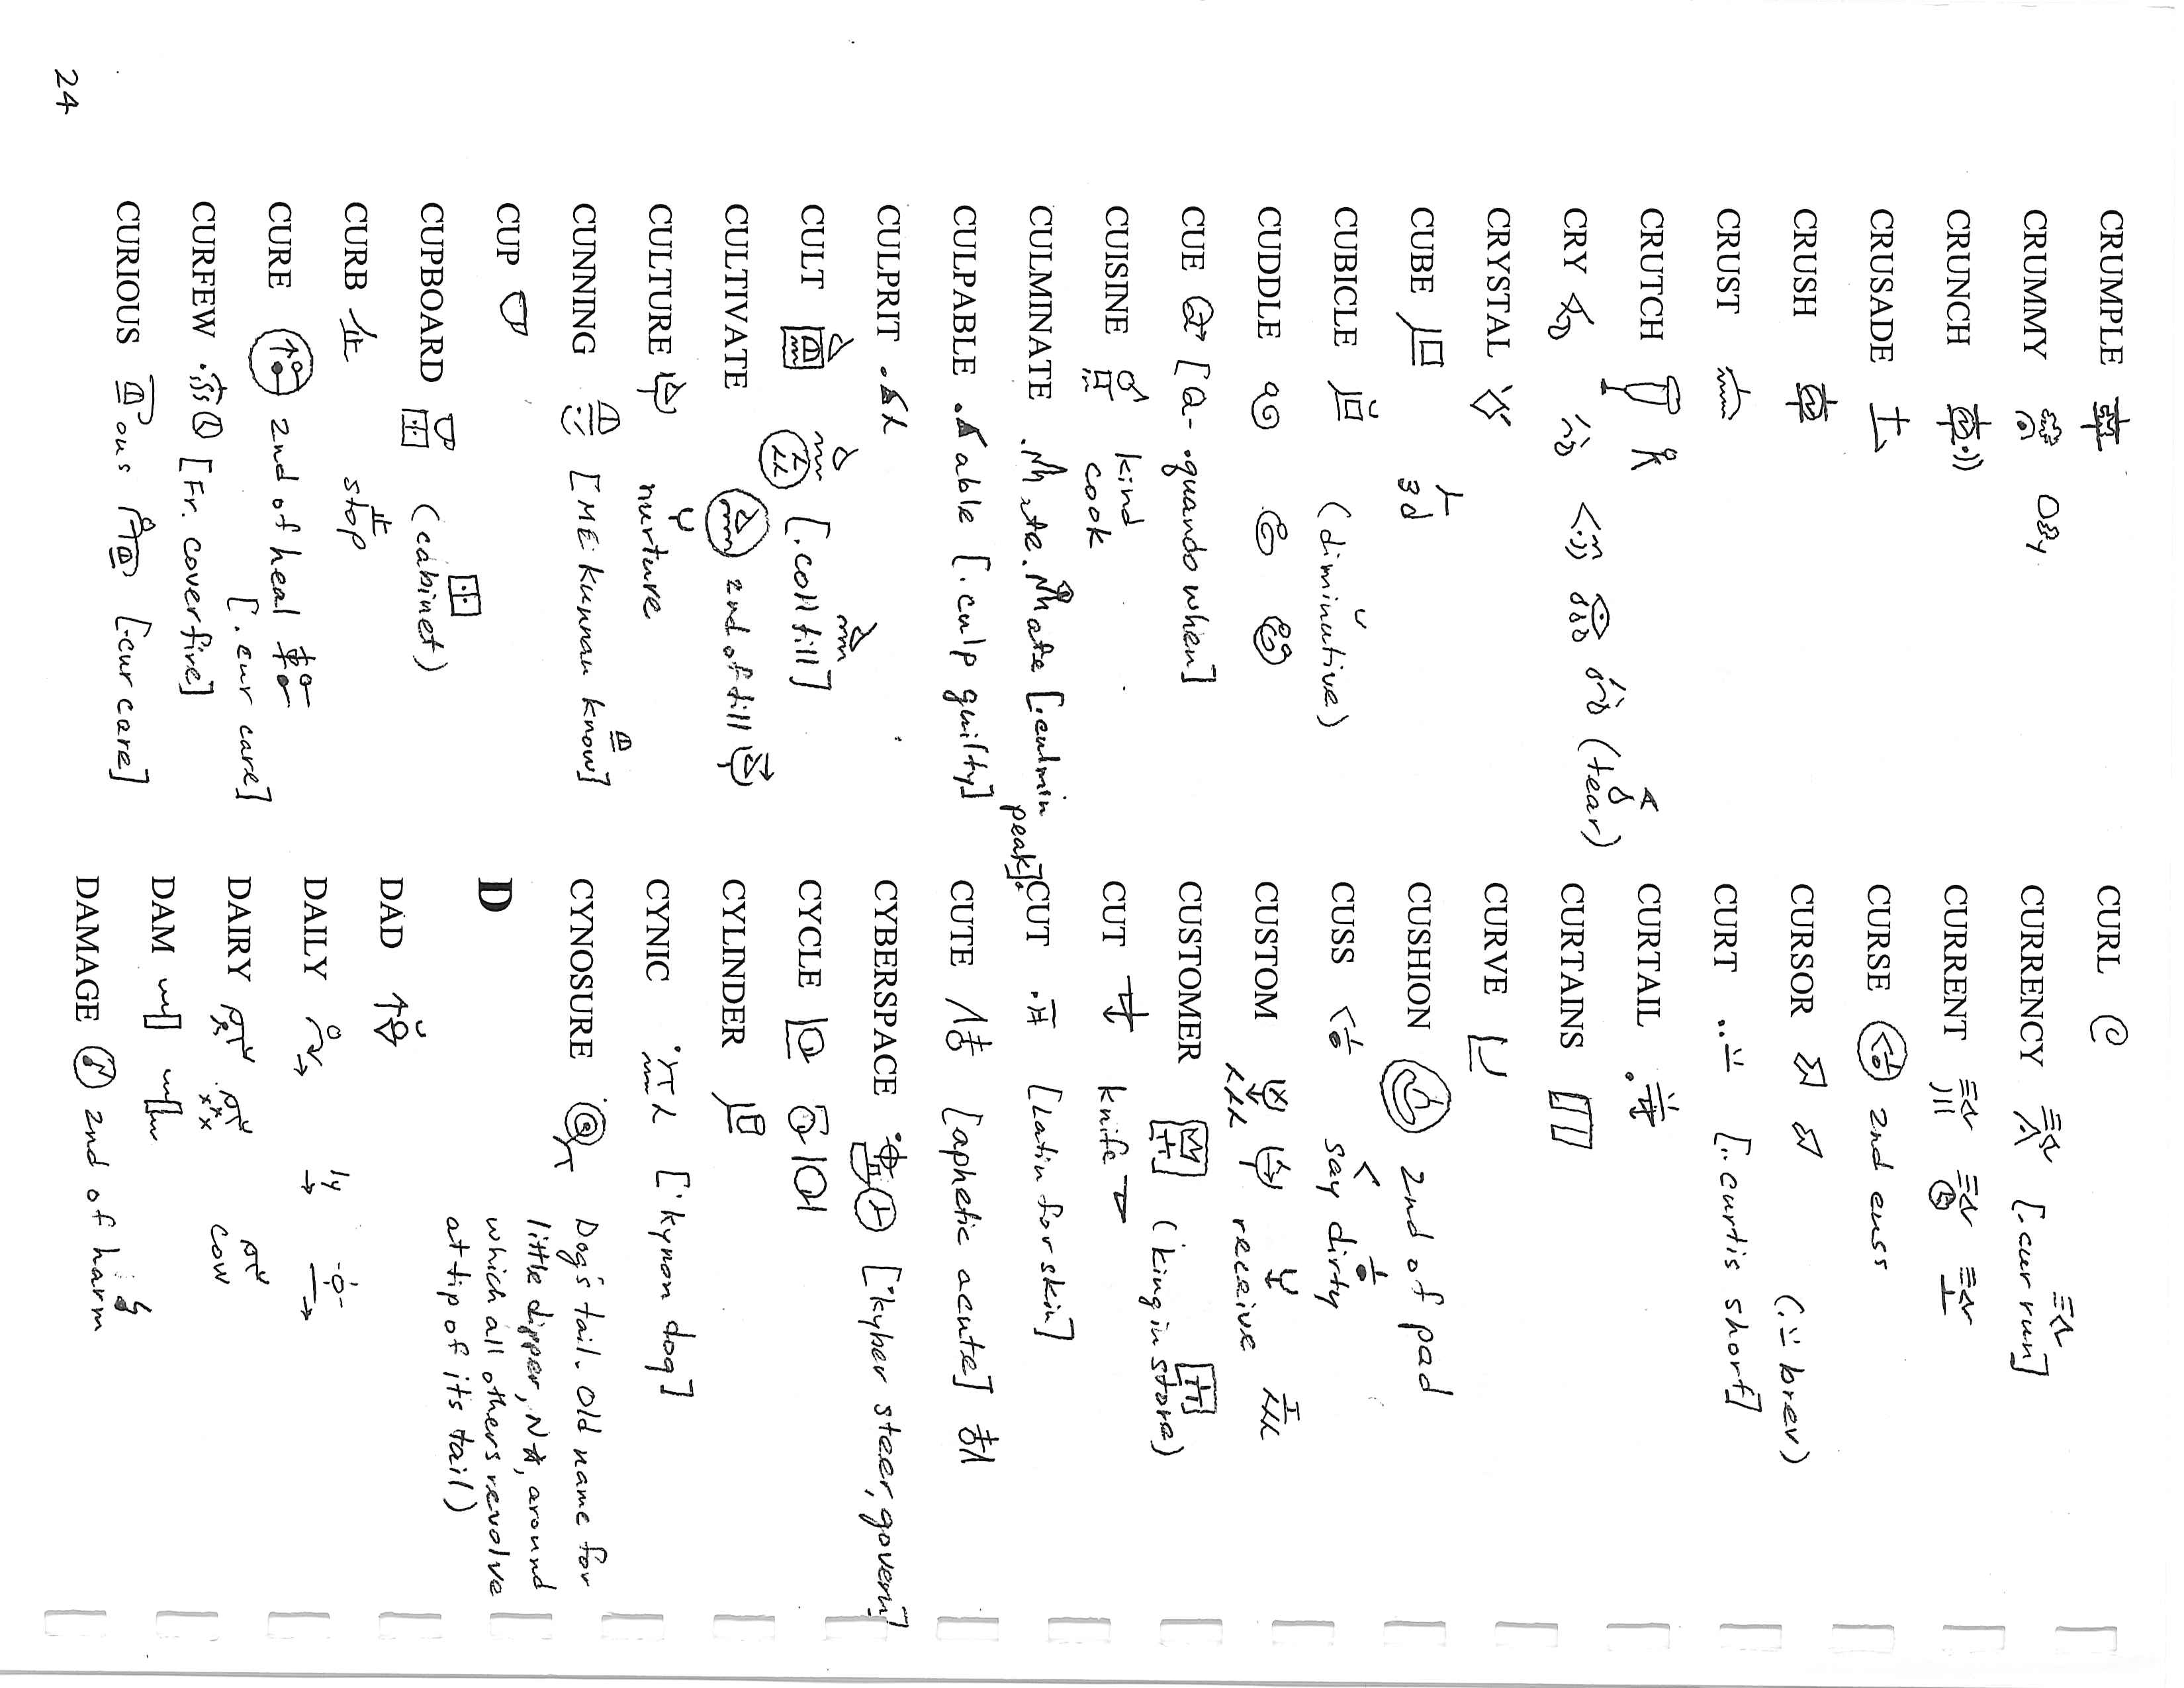 CRUMPLE
CRUMMY
CRUNCH
CRUSADE
CRUSH
CRUST
CRUTCH
CRY (tear)
CRYSTAL
CUBE 3d
CUBICLE (diminutive)
CUDDLE
CUE [Q- .quando when]
CUISINE kind
cook
CULMINATE .ate. ate [.culmin
peak].
CULPABLE . able [.culp guilty]
CULPRIT
CULT [.coll till]
CULTIVATE 2nd of till
CULTURE nurture
CUNNING [ME kunnan know]
CUP
CUPBOARD (cabinet)
CURB stop
CURE 2nd of heal
[.cur care]
CURFEW [Fr. cover fire]
CURIOUS ous [.cur care]
CURL
CURRENCY [.cur run]
CURRENT
CURSE 2nd cuss
CURSOR (brev)
CURT [..curtis short]
CURTAIL
CURTAINS
CURVE
CUSHION 2nd of pad
CUSS say dirty
CUSTOM receive
CUSTOMER (king in store)
CUT knife
CUT [Latin for skin]
CUTE [aphetic acute]
CYBERSPACE [·kyber steer, govern]
CYCLE
CYLINDER
CYNIC [·kynon dog]
CYNOSURE Dog's tail. Old name for
little dipper, N, around
which all others revolve
at tip of its tail)
D
DAD
DAILY ly
DAIRY cow
DAM
DAMAGE 2nd of harm
24